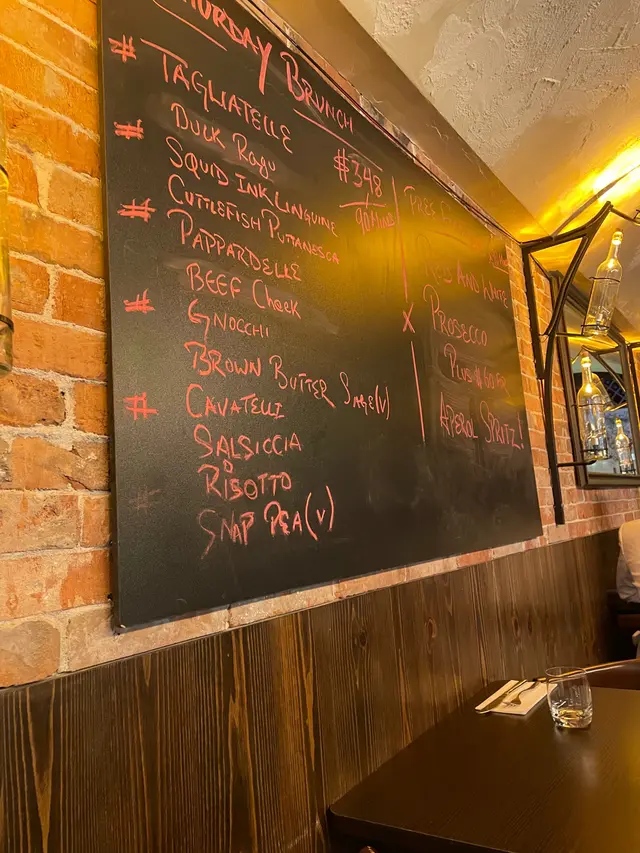 URDAY BRUNCH
# TAGLIATELLE
DUCK RAGU
# SQUID INK LINGUINE
CUTTLEFISH PUTTANESCA
# PAPPARDELLE
BEEF CHEEK
# GNOCCHI
BROWN BUTTER SAGE(V)
# CAVATELLI
SALSICCIA
RISOTTO
SNAP PEA(V)
$348
90 MINS
FREE
RED AND WHITE
X PROSECCO
PLUS $60 FOR
APEROL SPRITZ!